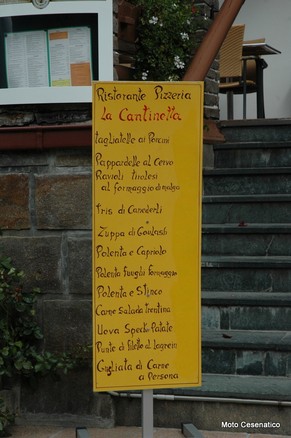 Ristorante Pizzeria
La Cantinetta
tagliatelle ai Porcini
Pappardelle al Cervo
Ravioli tirolesi
al formaggio di malga
Tris di Canederli
Zuppa di Goulash
Polenta e Capriolo
Polenta Funghi formaggio
Polenta e Stinco
Carne Salada trentina
Uova Speck Patate
Punte di filetto al lagrein
Gugliata di Carne
a Persona
Moto Cesenatico